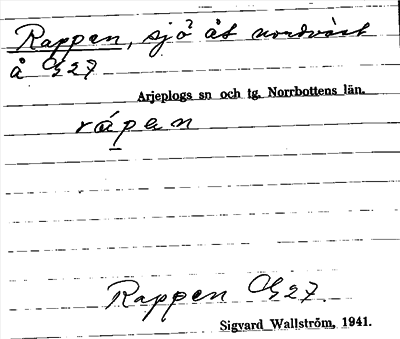 Rappen, sjö åt nordväst
å G27
Arjeplogs sn och tg. Norrbottens län.
rápen
Rappen G27.
Sigvard Wallström, 1941.